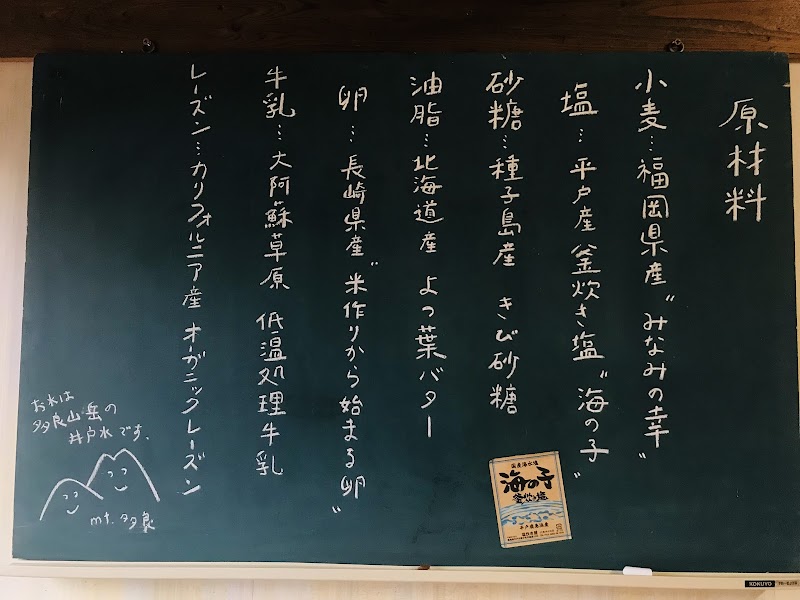 原材料
小麦…福岡県産"みなみの幸"
塩…平戸産 釜炊き塩"海の子"
砂糖…種子島産 きび砂糖
油脂…北海道産 よつ葉バター
卵…長崎県産"米作りから始まる卵"
牛乳…大阿蘇草原 低温処理牛乳
レーズン…カリフォルニア産 オーガニックレーズン
お水は
多良山岳の
井戸水です、
mt.多良
国産海水塩
海の子
釜炊き塩
KOKUYO